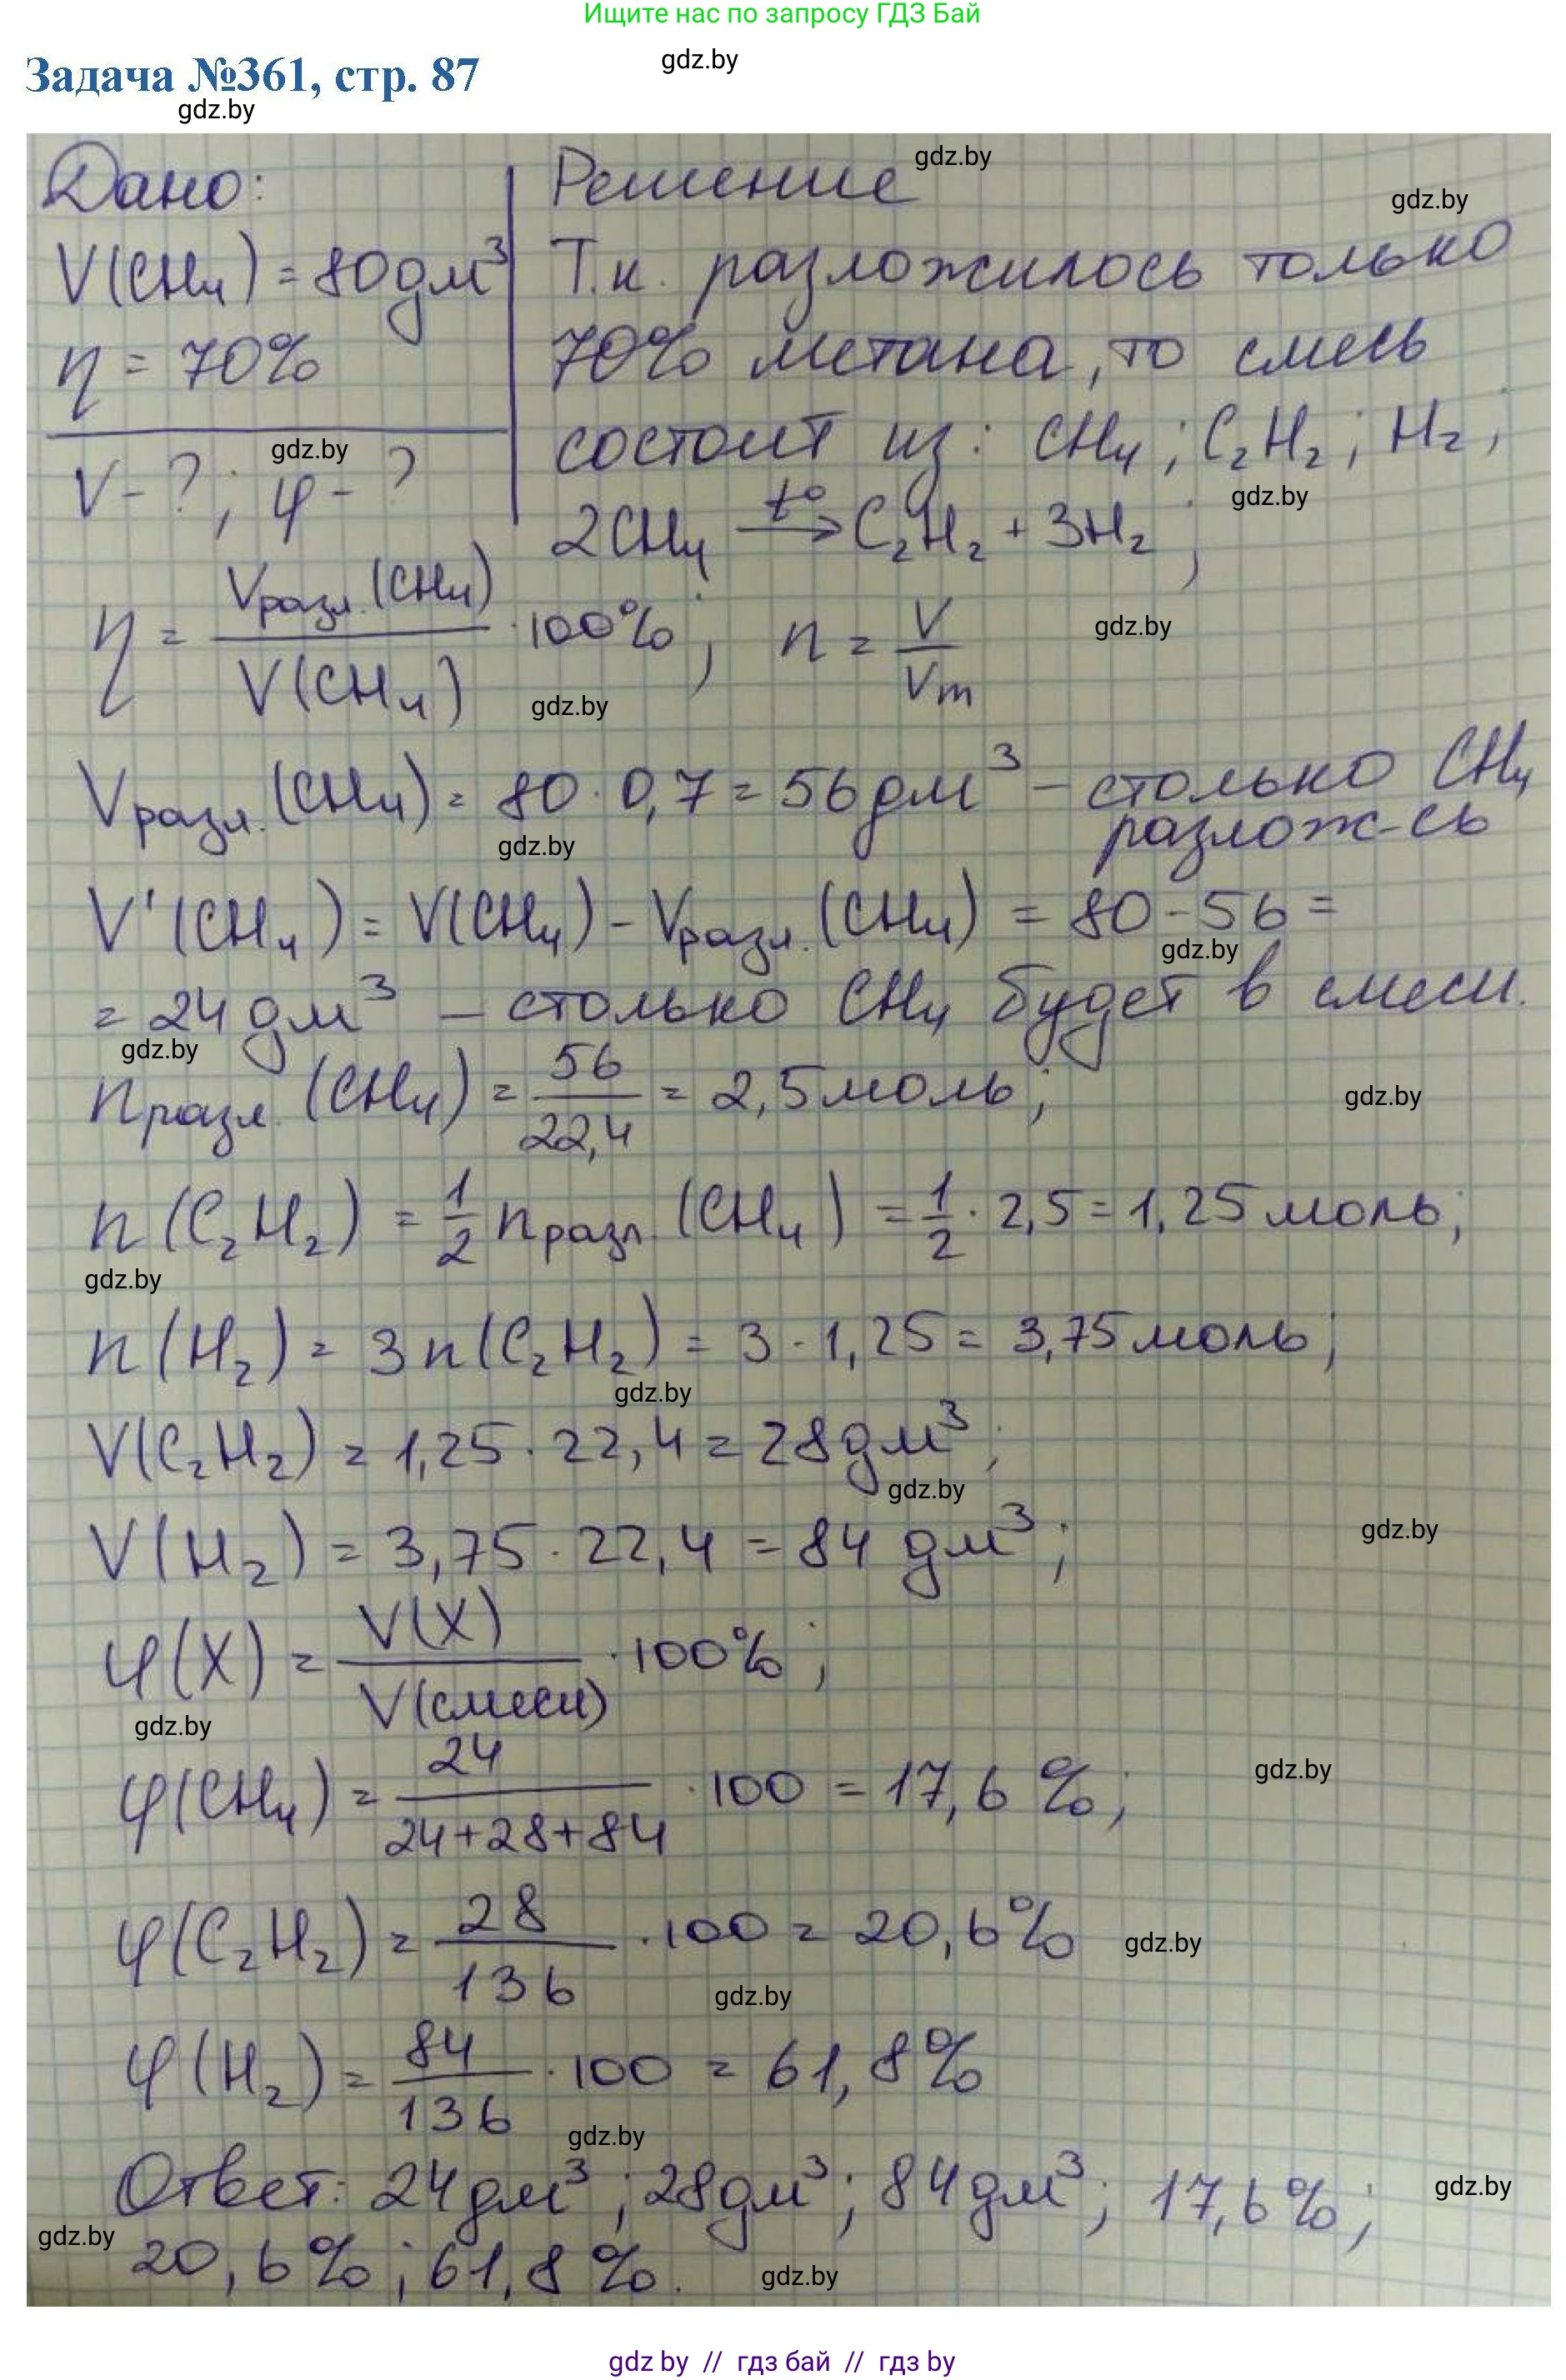 Ищите нас по запросу ГДЗ Бай
gdz.by
Задача №361, стр. 87
gdz.by
Дано:
V(CH₄) = 80 дм³
η = 70%
V - ?; φ - ?
gdz.by
Решение
gdz.by
gdz.by
Т.к. разложилось только
70% метана, то смесь
состоит из: CH₄; C₂H₂; H₂;
gdz.by
2CH₄ —t°→ C₂H₂ + 3H₂;
η = Vразл.(CH₄) / V(CH₄) · 100%; n = V / Vm
gdz.by
gdz.by
Vразл.(CH₄) = 80 · 0,7 = 56 дм³ – столько CH₄
разлож-сь
gdz.by
V'(CH₄) = V(CH₄) - Vразл.(CH₄) = 80 - 56 =
gdz.by
= 24 дм³ – столько CH₄ будет в смеси.
gdz.by
nразл.(CH₄) = 56 / 22,4 = 2,5 моль;
gdz.by
n(C₂H₂) = 1/2 nразл.(CH₄) = 1/2 · 2,5 = 1,25 моль;
gdz.by
n(H₂) = 3n(C₂H₂) = 3 · 1,25 = 3,75 моль;
gdz.by
V(C₂H₂) = 1,25 · 22,4 = 28 дм³;
gdz.by
V(H₂) = 3,75 · 22,4 = 84 дм³;
gdz.by
φ(X) = V(X) / V(смеси) · 100%;
gdz.by
φ(CH₄) = 24 / 24+28+84 · 100 = 17,6%;
gdz.by
φ(C₂H₂) = 28 / 136 · 100 = 20,6%
gdz.by
gdz.by
φ(H₂) = 84 / 136 · 100 = 61,8%
gdz.by
Ответ: 24 дм³; 28 дм³; 84 дм³; 17,6%;
gdz.by
gdz.by
20,6%; 61,8%.
gdz.by
gdz by // гдз бай // гдз by